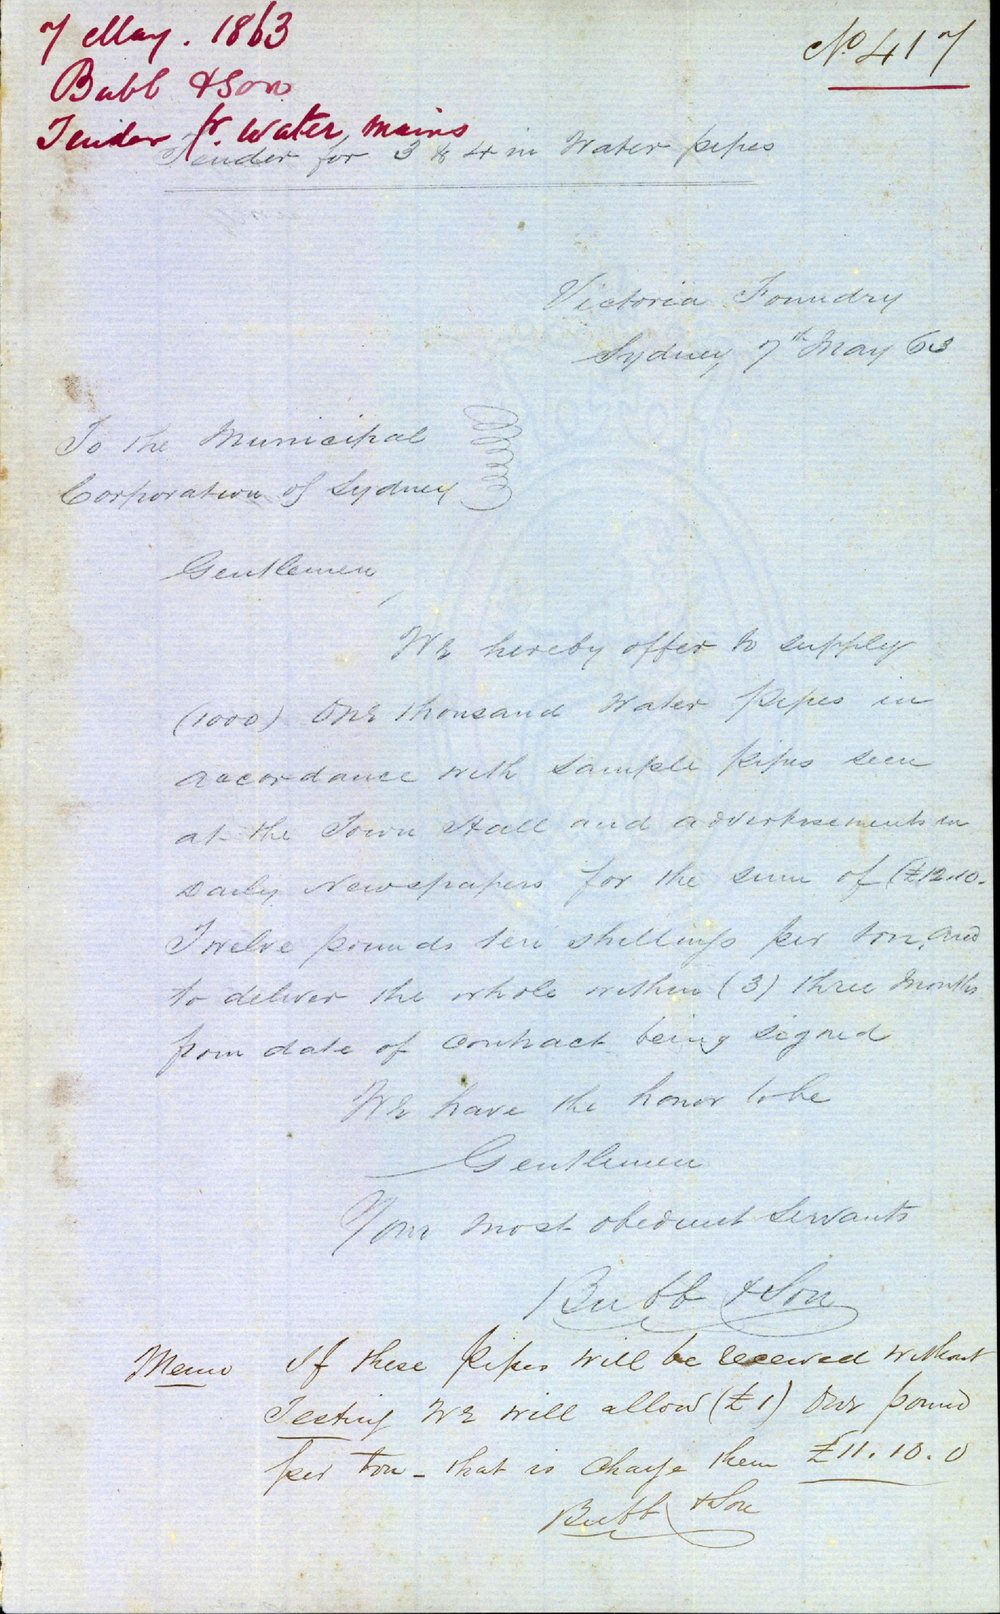 7 May. 1863
Bubb & Son
Tender fr. Water mains
No 417
Tender for 3 & 4 in Water pipes
Victoria Foundry
Sydney 7th May 63
To the Municipal
Corporation of Sydney
Gentlemen,
We hereby offer to supply
(1000) One thousand Water Pipes in
accordance with sample pipes seen
at the Town Hall and advertisements in
Daily Newspapers for the sum of (£12.10.
Twelve pounds ten shillings per ton, and
to deliver the whole within (3) three Months
from date of contract being signed
We have the honor to be
Gentlemen
Your most obedient Servants
Bubb & Son
Memo If these Pipes will be received without
Testing We will allow (£1) One pound
per ton - that is charge them £11.10.0
Bubb & Son